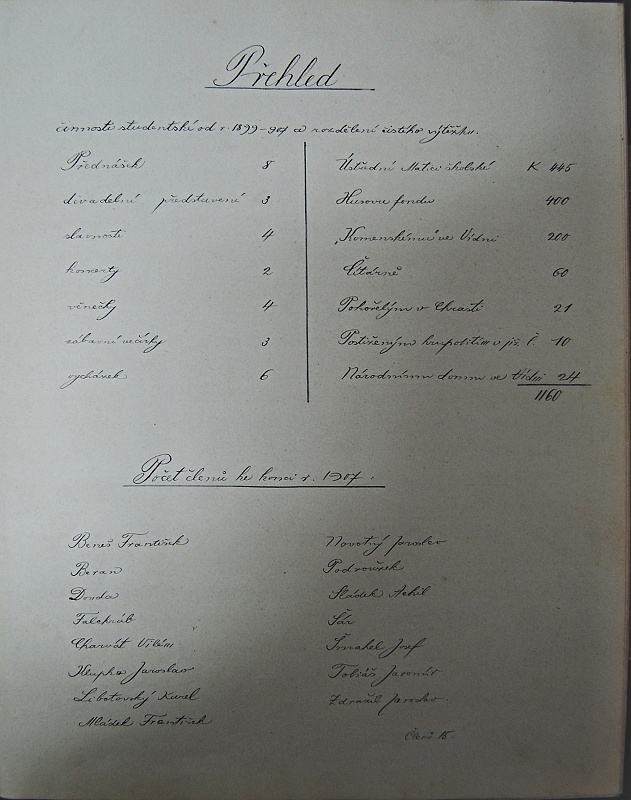 Přehled
činnosti studentské od r. 1899-907 a rozdělení čistého výtěžku.
Přednášek 8
divadelní představení 3
slavnosti 4
koncerty 2
věnečky 4
zábavní večírky 3
vycházek 6
Ústřední Matici školské K 445
Husovu fondu 400
„Komenskému" ve Vídni 200
Čítárně 60
Pohořelým v Chrasti 21
Postiženým krupobitím v již. Č. 10
Národnímu domu ve Vídni 24
1160
Počet členů ke konci r. 1907.
Beneš František
Beran
Donda
Falchrúb
Charvát Vilém
Krupka Jaroslav
Libotovský Karel
Mládek František
Novotný Jaroslav
Podroužek
Sládek Achil
Šír
Šmahel Josef
Tobiáš Jaromír
Zdražil Jaroslav
Členů 15.